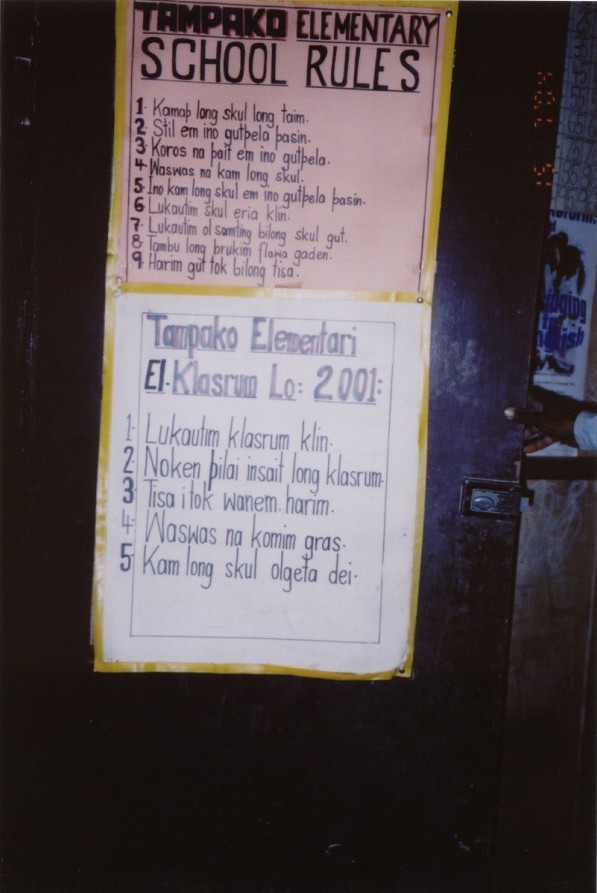 TAMPAKO ELEMENTARY
SCHOOL RULES
1. Kamap long skul long taim.
2. Stil em ino gutpela pasin.
3. Koros na pait em ino gutpela.
4. Waswas na kam long skul.
5. Ino kam long skul em ino gutpela pasin.
6. Lukautim skul eria klin.
7. Lukautim ol samting bilong skul gut.
8. Tambu long brukim flawa gaden.
9. Harim gut tok bilong tisa.
Tampako Elementari
El. Klasrum Lo: 2001:
1. Lukautim klasrum klin.
2. Noken pilai insait long klasrum.
3. Tisa i tok wanem harim.
4. Waswas na komim gras.
5. Kam long skul olgeta dei.